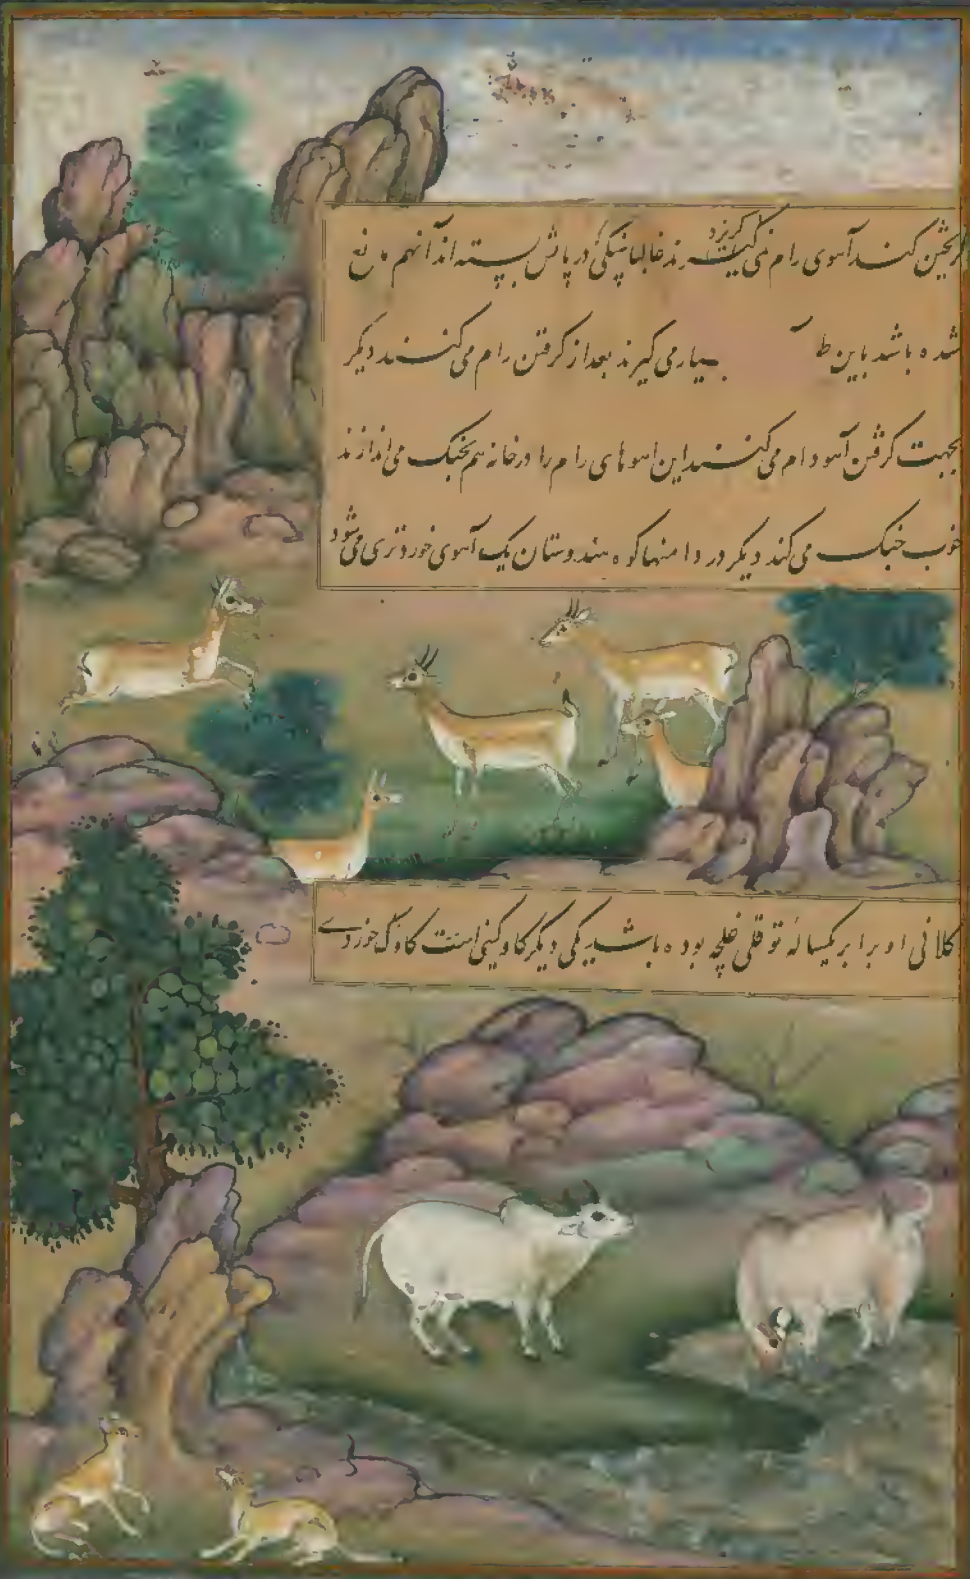 گریختن کند آهوی رام نمی گریزد غالبا چیزکی در پاش بسته اند آنهم مانع
شده باشد باین ط بسیار می گیرند بعد از گرفتن رام می کنند دیگر
بجهت گرفتن آهو دام می کنند این اهوهای رام را در خانه هم بجنک می اندازند
خوب جنک می کند دیگر در دامنهاء کوه هندوستان یک آهوی خوردتری می شود
کلانی او برابر یکساله توقلی غلجه بوده باشد یکی دیگر کاو کینی است کاوک خوردی